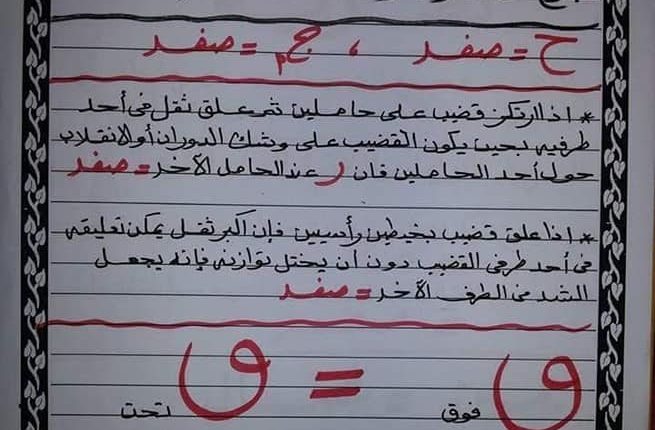 ح = صفر ، جـ م = صفر
* اذا ارتكز قضيب على حاملين ثم علق ثقل فى أحد
طرفيه بحيث يكون القضيب على وشك الدوران أو الانقلاب
حول أحد الحاملين فان ر عند الحامل الآخر = صفر
* اذا علق قضيب بخيطين رأسيين فإن أكبر ثقل يمكن تعليقه
فى أحد طرفى القضيب دون أن يختل توازنه فإنه يجعل
الشد فى الطرف الآخر = صفر
ق فوق = ق تحت